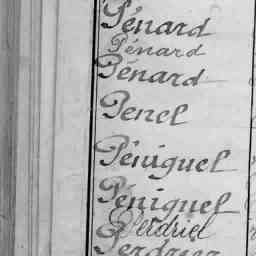 Pénard
Pénard
Pénard
Penel
Péniguel
Péniguel
Perdriel
Perdrier